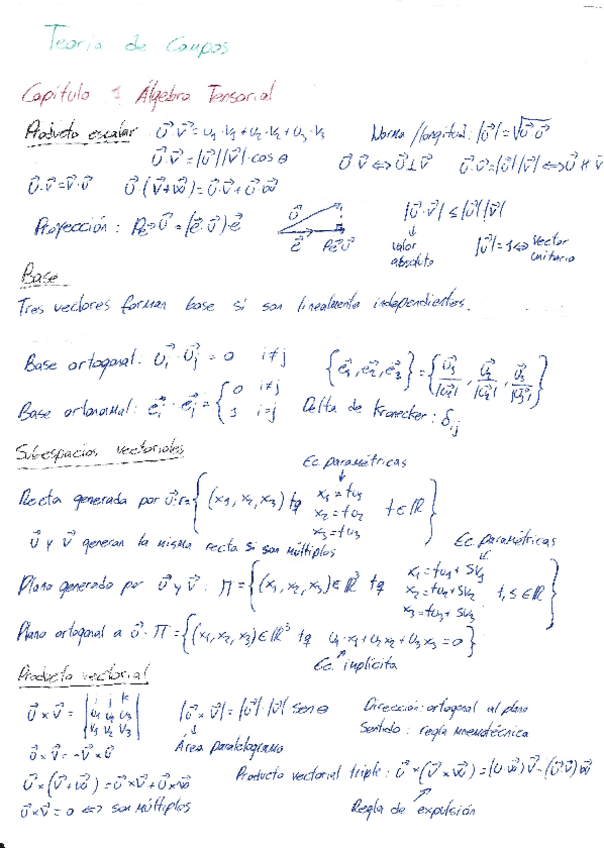 Teoría de Campos
Capítulo 1 Álgebra Tensorial
Producto escalar u⃗·v⃗=u₁·v₁+u₂·v₂+u₃·v₃ Norma/longitud: |u⃗|=√u⃗·u⃗
u⃗·v⃗=|u⃗||v⃗|·cosθ u⃗·v⃗⇔u⃗⊥v⃗ u⃗·v⃗=|u⃗||v⃗|⇔u⃗∥v⃗
u⃗·v⃗=v⃗·u⃗ u⃗·(v⃗+w⃗)=u⃗·v⃗+u⃗·w⃗
Proyección: Pe⃗u⃗=(e⃗·u⃗)e⃗ u⃗ e⃗ Pe⃗u⃗ |u⃗·v⃗|≤|u⃗||v⃗|
valor absoluto |u⃗|=1⇔ vector unitario
Base
Tres vectores forman base si son linealmente independientes.
Base ortogonal: u⃗ᵢ·u⃗ⱼ=0 i≠j {e⃗₁,e⃗₂,e⃗₃}={u⃗₁/|u⃗₁|, u⃗₂/|u⃗₂|, u⃗₃/|u⃗₃|}
Base ortonormal: e⃗ᵢ·e⃗ⱼ={0 i≠j 1 i=j Delta de Kronecker: δᵢⱼ
Subespacios vectoriales
Ec. paramétricas
Recta generada por u⃗: r={(x₁,x₂,x₃) tq x₁=tu₁ x₂=tu₂ x₃=tu₃ t∈ℝ}
u⃗ y v⃗ generan la misma recta si son múltiplos
Ec. paramétricas
Plano generado por u⃗ y v⃗: Π={(x₁,x₂,x₃)∈ℝ³ tq x₁=tu₁+sv₁ x₂=tu₂+sv₂ x₃=tu₃+sv₃ t,s∈ℝ}
Plano ortogonal a u⃗: Π={(x₁,x₂,x₃)∈ℝ³ tq u₁·x₁+u₂x₂+u₃x₃=0}
Ec. implícita
Producto vectorial
u⃗×v⃗=|i j k u₁ u₂ u₃ v₁ v₂ v₃| |u⃗×v⃗|=|u⃗|·|v⃗| senθ Dirección: ortogonal al plano
Sentido: regla mnemotécnica
u⃗×v⃗=-v⃗×u⃗ Área paralelogramo
u⃗×(v⃗+w⃗)=u⃗×v⃗+u⃗×w⃗ Producto vectorial triple: u⃗×(v⃗×w⃗)=(u⃗·w⃗)v⃗-(u⃗·v⃗)w⃗
u⃗×v⃗=0⇔son múltiplos Regla de expulsión